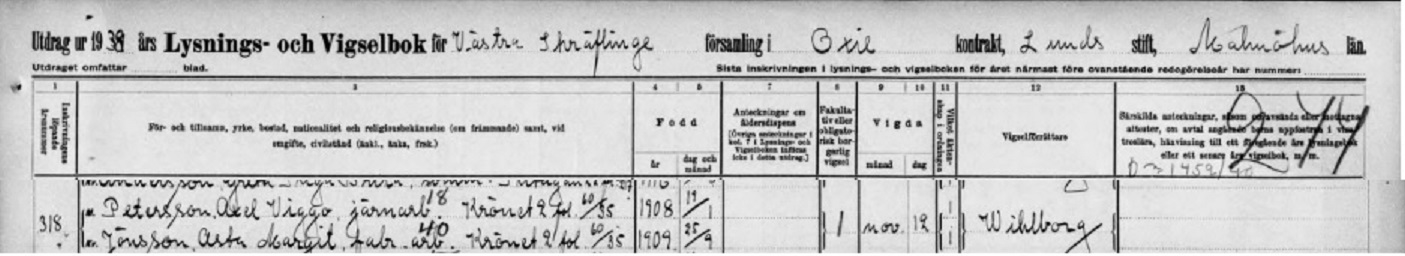 Utdrag ur 1938 års Lysnings- och Vigselbok för Västra Skräflinge församling i Oxie kontrakt, Lunds stift, Malmöhus län.
Utdraget omfattar blad. Sista inskrivningen i lysnings- och vigselboken för året närmast före ovanstående redogörelseår har nummer:
1 3 4 5 7 8 9 10 11 12 13
Inskrivningens löpande årsnummer
För- och tillnamn, yrke, bostad, nationalitet och religionsbekännelse (om främmande) samt, vid
omgifte, civilstånd (änkl., änka, frsk.)
Född
år dag och månad
Anteckningar om
åldersdispens
[Övriga anteckningar i
kol. 7 i Lysnings- och
Vigselboken införas
icke i detta utdrag.]
Fakulta-
tiv eller
obligato-
risk bor-
gerlig
vigsel
Vigda
månad dag
Vilket äkten-
skap i ordningen
Vigselförrättare
244
D 1459/40
18
Petersson, Axel Viggo, järnarb. Krönet 2 fol. 60/35 1908 19/1
318 1 nov. 12 1 1 Wihlborg
40
Jönsson, Asta Margit, fabr. arb. Krönet 2 fol. 60/35 1909 25/9